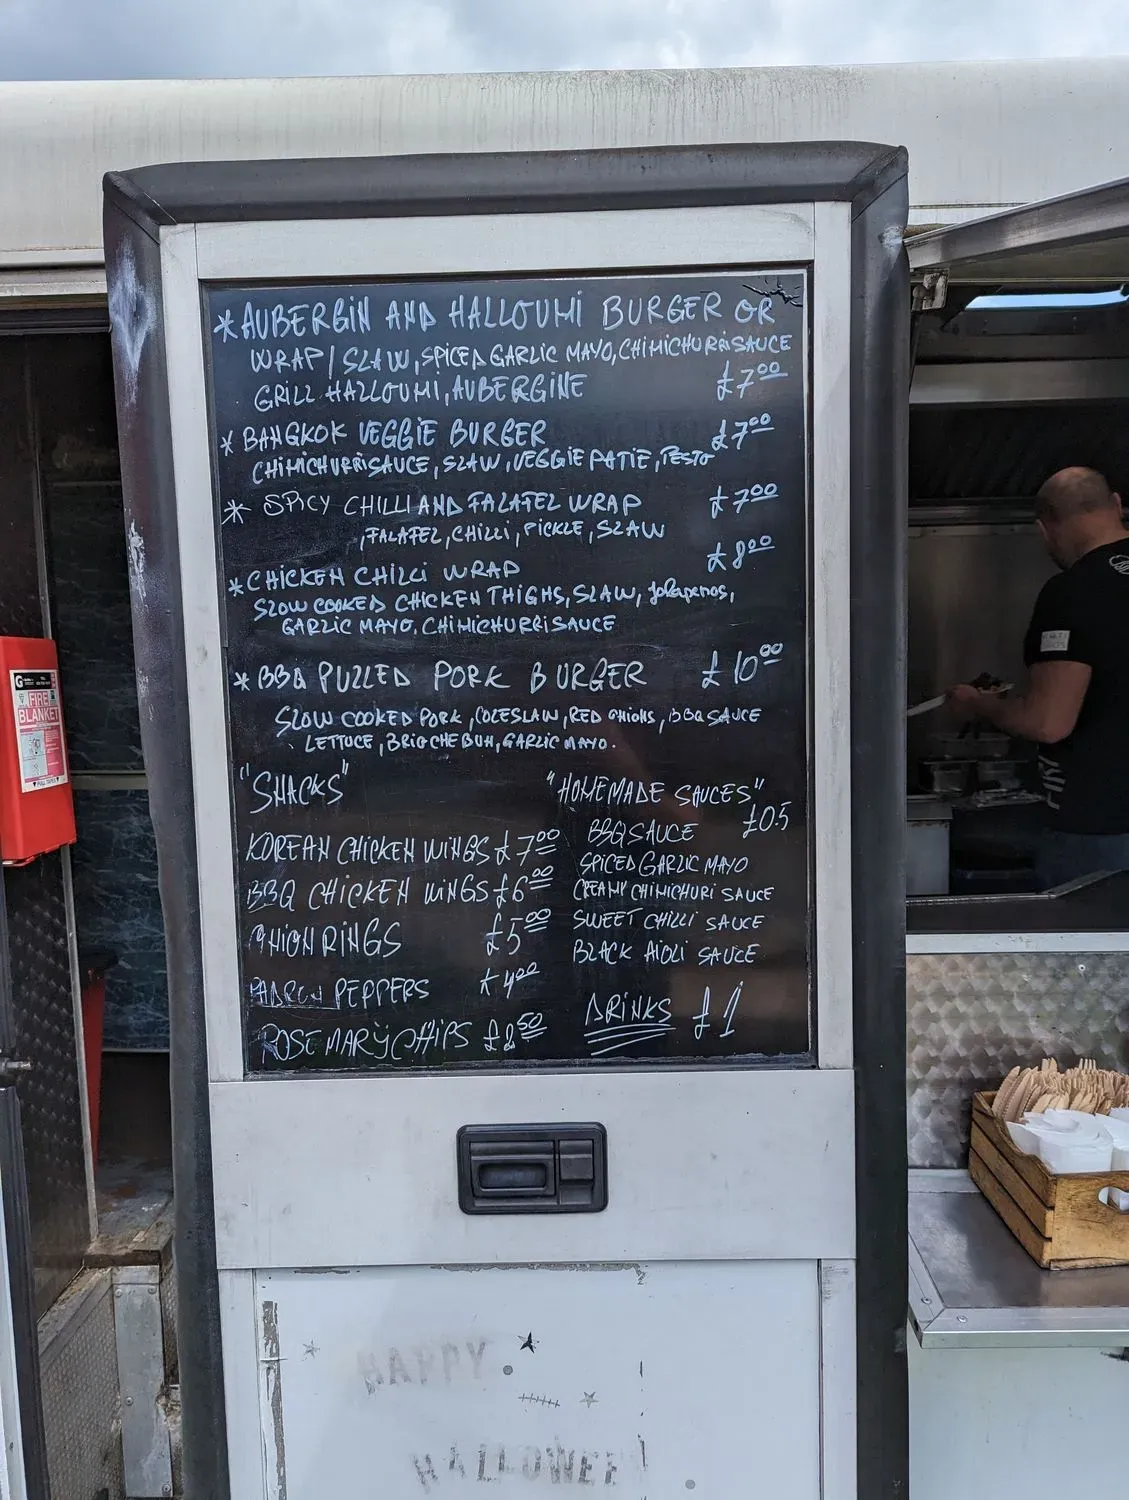 *AUBERGIN AND HALLOUMI BURGER OR
WRAP/SLAW, SPICED GARLIC MAYO, CHIMICHURRI SAUCE
GRILL HALLOUMI, AUBERGINE £7.00
*BANGKOK VEGGIE BURGER £7.00
CHIMICHURRI SAUCE, SLAW, VEGGIE PATIE, PESTO
* SPICY CHILLI AND FALAFEL WRAP £7.00
,FALAFEL, CHILLI, PICKLE, SLAW
*CHICKEN CHILLI WRAP £8.00
SLOW COOKED CHICKEN THIGHS, SLAW, Jalapenos,
GARLIC MAYO, CHIMICHURRI SAUCE
*BBQ PULLED PORK BURGER £10.00
SLOW COOKED PORK, COLESLAW, RED ONIONS, BBQ SAUCE
LETTUCE, BRIOCHE BUN, GARLIC MAYO.
"SNACKS"
KOREAN CHICKEN WINGS £7.00
BBQ CHICKEN WINGS £6.00
ONION RINGS £5.00
PADRON PEPPERS £4.00
ROSEMARY CHIPS £2.50
"HOMEMADE SAUCES"
£0.5
BBQ SAUCE
SPICED GARLIC MAYO
CREAMY CHIMICHURI SAUCE
SWEET CHILLI SAUCE
BLACK AIOLI SAUCE
DRINKS £1
FIRE
BLANKET
HAPPY
HALLOWEEN